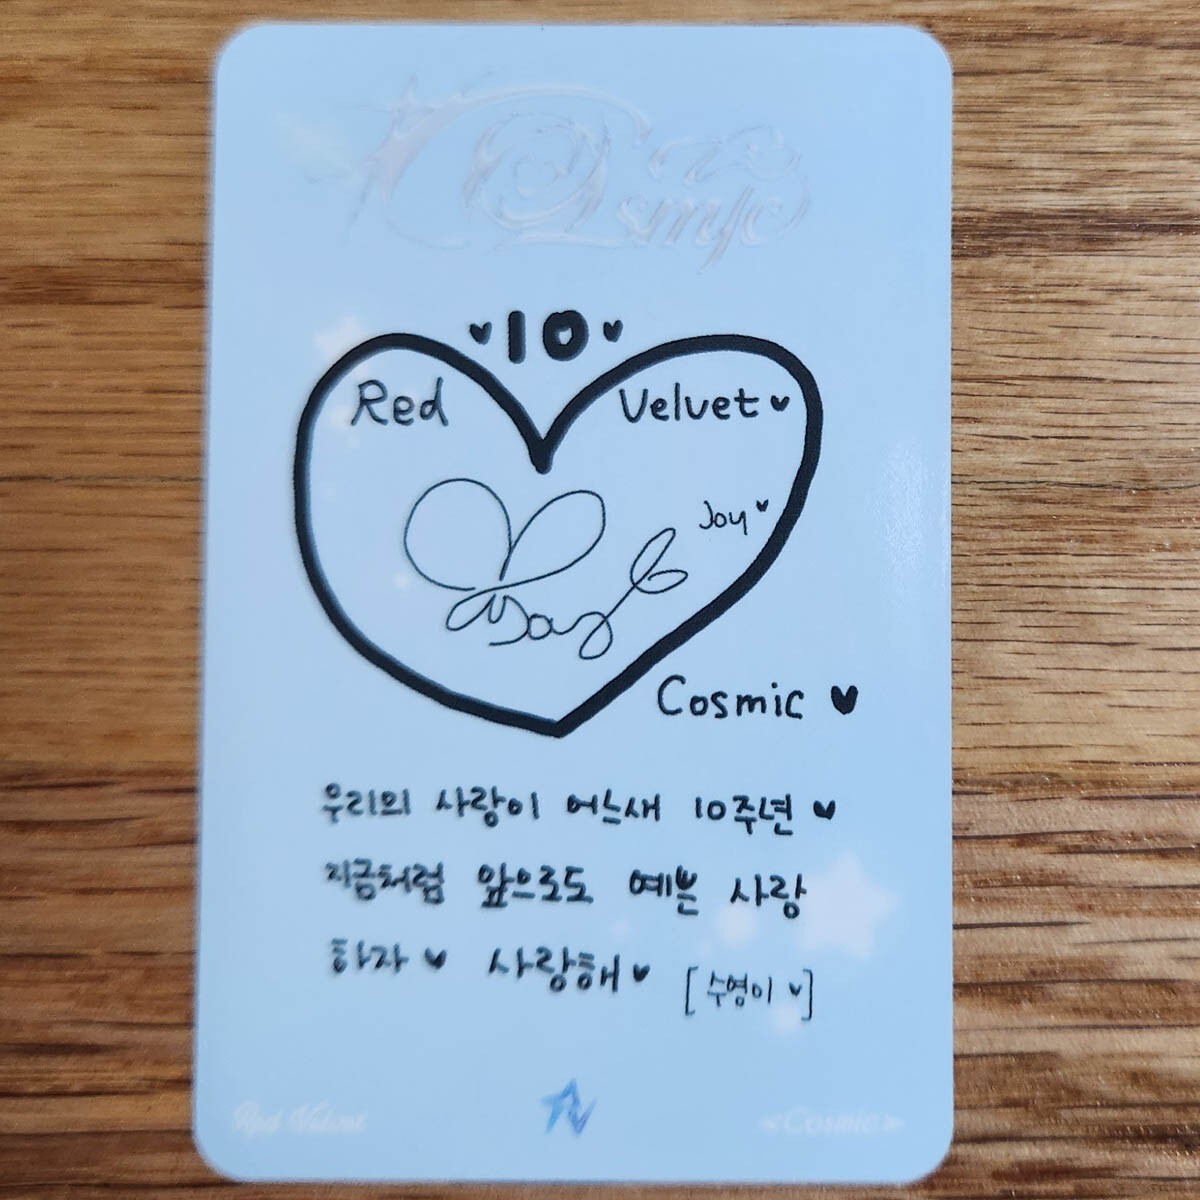 Cosmic
♥10♥
Red Velvet ♥
Joy ♥
Cosmic ♥
우리의 사랑이 어느새 10주년 ♥
지금처럼 앞으로도 예쁜 사랑
하자 ♥ 사랑해 ♥ [수영이 ♥]
Red Velvet
Cosmic